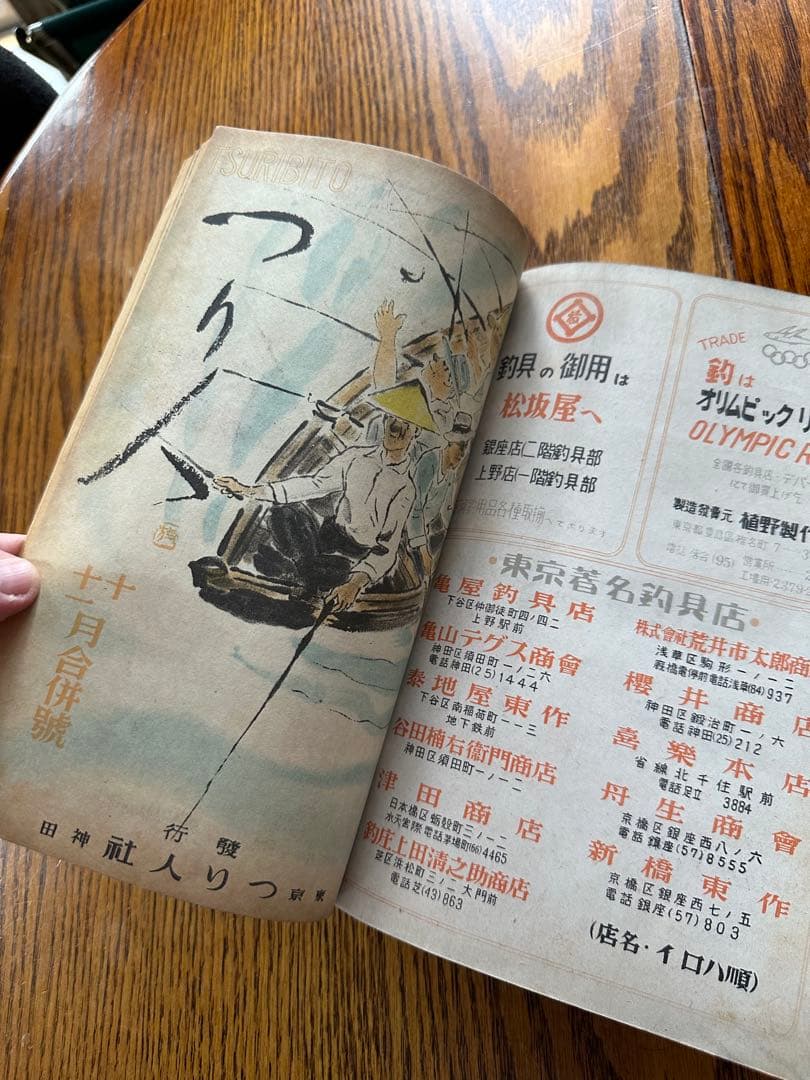 TSURIBITO
つり人
十
十一月合併號
發行
東京 つり人社 神田
釣具の御用は
松坂屋へ
銀座店(二階釣具部
上野店(一階釣具部
TRADE
釣は
オリムピック
OLYMPIC
全國各釣具店・デパー
にて御買上げ
製造發賣元 植野製作
・東京著名釣具店・
亀屋釣具店
下谷区仲御徒町四ノ四二
上野駅前
亀山テグス商會
神田区須田町一ノ二六
電話神田(25)1444
泰地屋東作
下谷区南稲荷町一一三
地下鉄前
谷田楠右衞門商店
神田区須田町一ノ一二
津田商店
日本橋区蛎殻町三ノ二
水天宮際電話茅場町(66)4465
釣庄上田清之助商店
芝区浜松町三ノ二大門前
電話芝(43)863
株式會社荒井市太郎商
浅草区駒形一ノ一二
電停前電話浅草(84)937
櫻井商店
神田区鍛治町一ノ六
電話神田(25)212
喜樂本店
省線北千住駅前
電話足立 3884
丹生商會
京橋区銀座西八ノ六
電話銀座(57)8555
新橋東作
京橋区銀座西七ノ五
電話銀座(57)803
(店名・イロハ順)